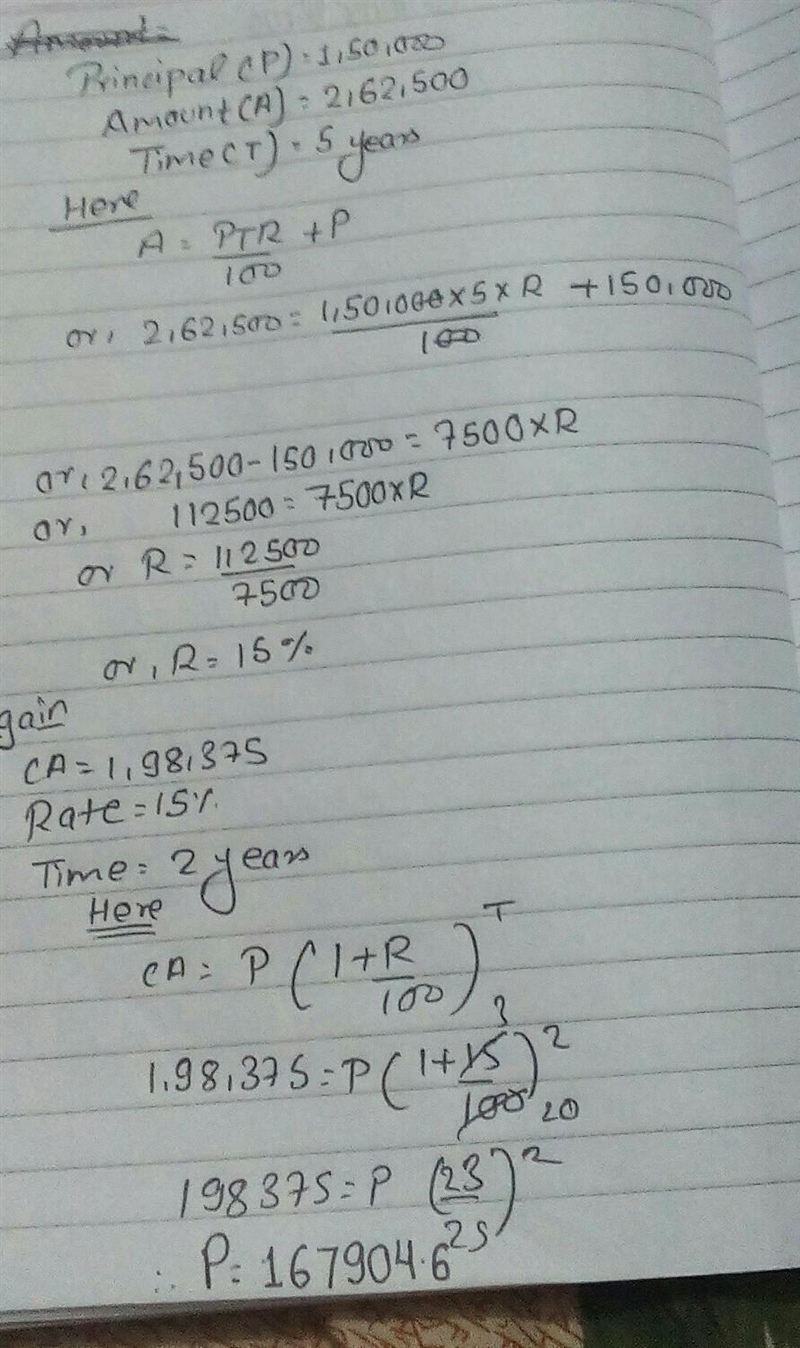 Principal (P) = 1,50,000
Amount (A) = 2,62,500
Time (T) = 5 years
Here
A = PTR/100 + P
or, 2,62,500 = 1,50,000×5×R/100 + 150,000
or, 2,62,500 - 150,000 = 7500×R
or, 112500 = 7500×R
or R = 112500/7500
or, R = 15%
gain
CA = 1,98,375
Rate = 15%
Time = 2 years
Here
CA = P (1 + R/100)^T
1,98,375 = P (1 + 15/100)^2 3 20
198375 = P (23/25)^2
∴ P = 167904.6